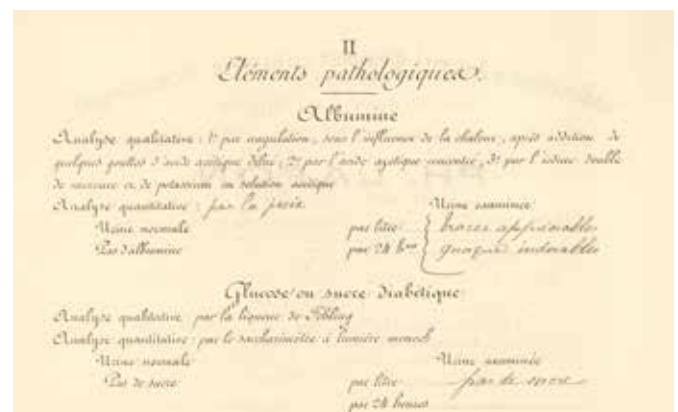 II
Eléments pathologiques.
Albumine
Analyse qualitative : 1º par coagulation, sous l'influence de la chaleur, après addition de
quelques gouttes d'acide acétique dilué ; 2º par l'acide azotique concentré ; 3º par l'iodure double
de mercure et de potassium en solution acétique
Analyse quantitative : par la pesée
Urine normale
Urine examinée
Pas d'albumine
par litre
par 24 hres
traces appréciables
quoique indosables
Glucose ou sucre diabétique
Analyse qualitative par la liqueur de Fehling
Analyse quantitative : par le saccharimètre à lumière monoch
Urine normale
Urine examinée
Pas de sucre
par litre
pas de sucre
par 24 heures